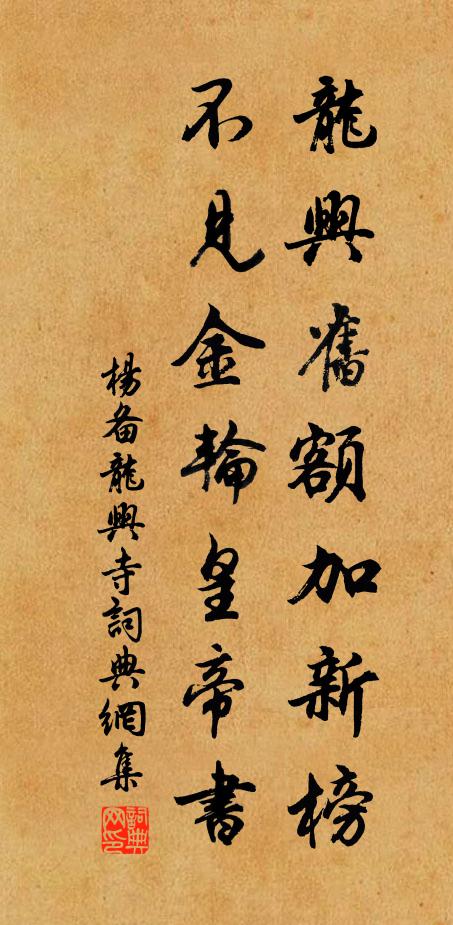 龍興舊額加新榜
不見金輪皇帝書
楊备龍興寺詞典網集
詞典网印